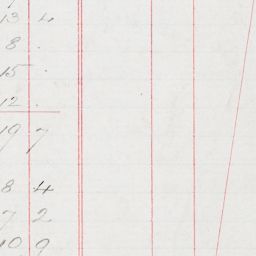 13 4
8 .
15 .
12 .
19 7
8 4
7 2
10 9